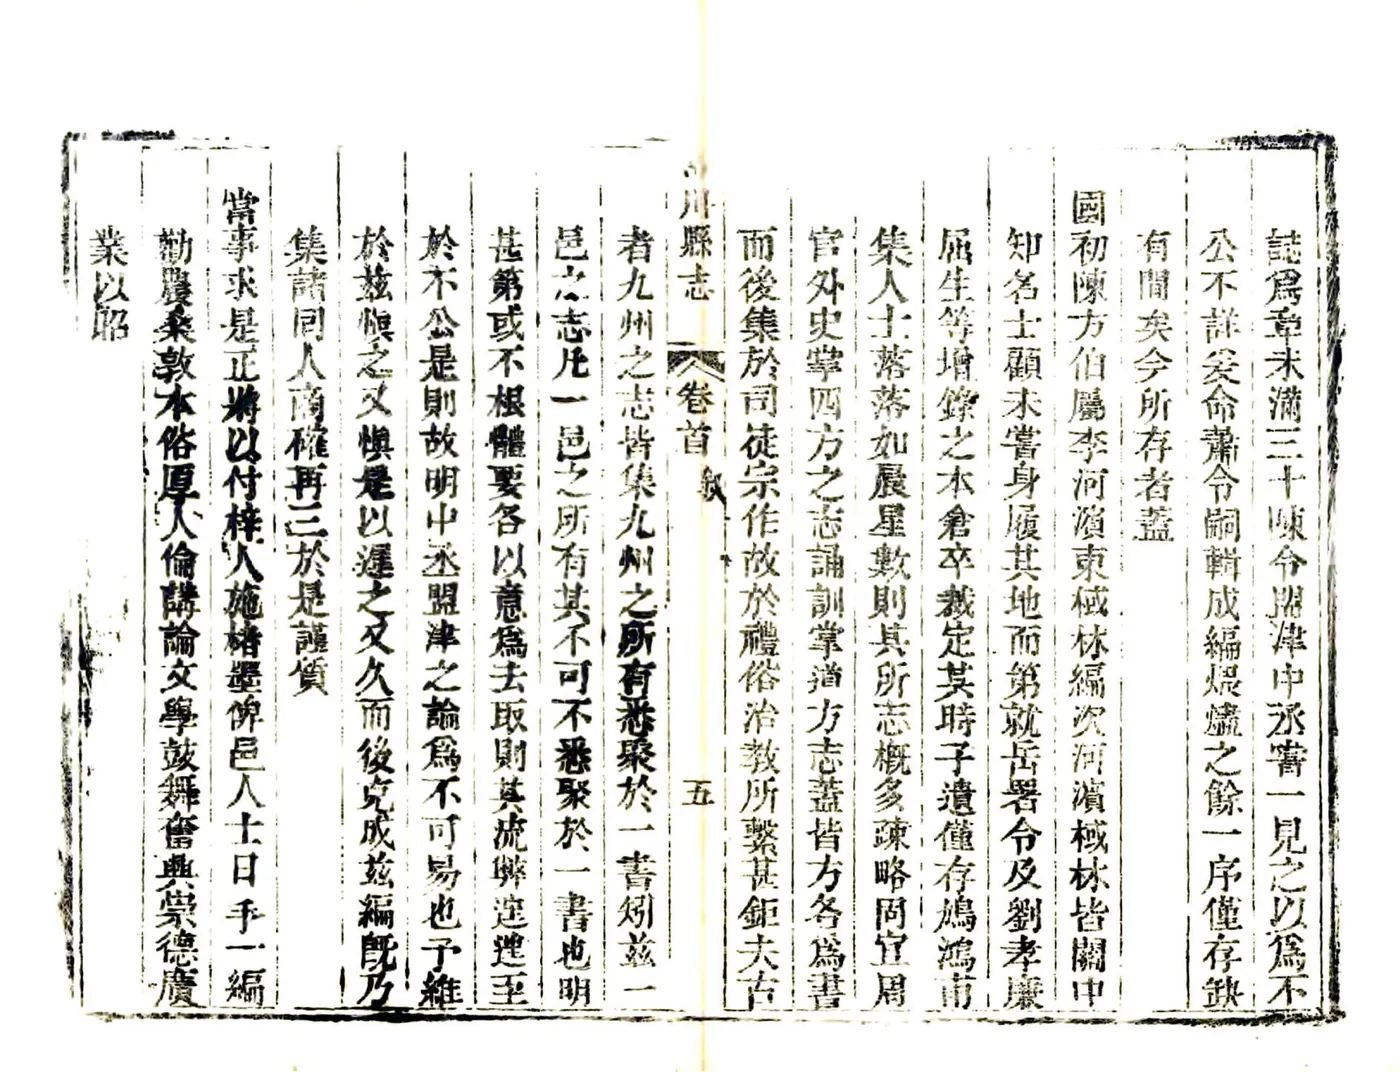 誌爲章未滿三十陳令盟津中丞審一見之以爲不
公不詳妥命蕭令嗣輯成編煨燼之餘一序僅存缺
有間矣今所存者蓋
國初陳方伯屬李河濵東棫林編次河濵棫林皆關中
知名士顧未嘗身履其地而第就岳署令及劉孝廉
屈生等增錄之本倉卒裁定其時孑遺僅存鴻甫
集人士落落如晨星數則其所志概多疎略固宜周
官外史掌四方之志誦訓掌道方志蓋皆方各爲書
而後集於司徒宗作故於禮俗治教所繫甚鉅夫古
川縣志 卷首 敘 五
者九州之志皆集九州之所有悉聚於一書矧兹一
邑之志凡一邑之所有其不可不悉聚於一書也明
甚第或不根體要各以意爲去取則其流弊遂遝至
於不公是則故明中丞盟津之論爲不可易也予維
於兹愼之又愼是以遲之又久而後克成兹編旣乃
集諸同人商確再三於是謹質
當事求是正將以付梓人施楮墨俾邑人士日手一編
勸農桑敦本俗厚人倫講論文學鼓舞奮興崇德廣
業以昭